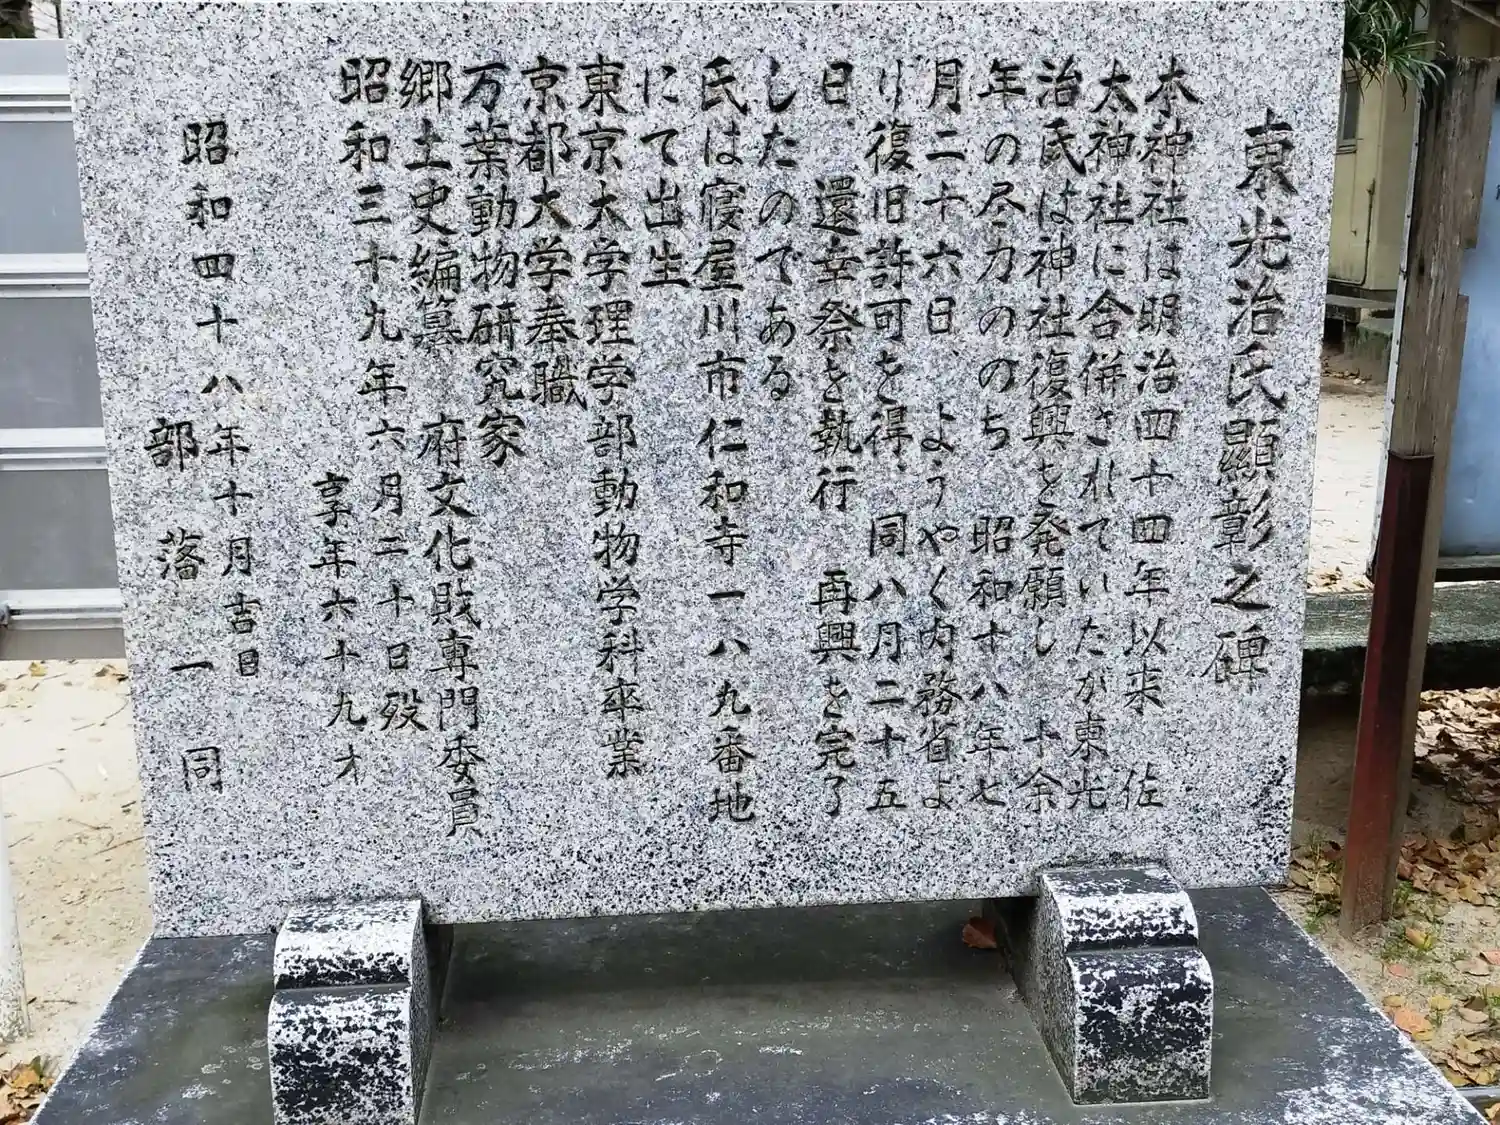 東光治氏顯彰之碑
本神社は明治四十四年以来 佐
太神社に合併されていたが東光
治氏は神社復興を発願し 十余
年の尽力ののち 昭和十八年七
月二十六日、ようやく内務省よ
り復旧許可を得、同八月二十五
日、還幸祭を執行 再興を完了
したのである
氏は寝屋川市仁和寺一八九番地
にて出生
東京大学理学部動物学科卒業
京都大学奉職
万葉動物研究家
郷土史編纂 府文化財専門委員
昭和三十九年六月二十日歿
享年六十九才
昭和四十八年十月吉日
部落一同